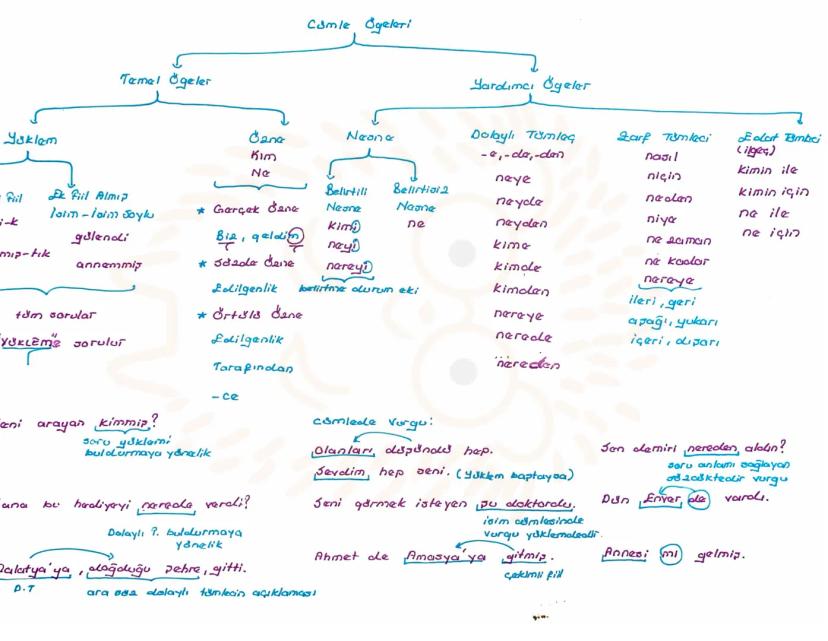 Cümle Ögeleri
Temel Ögeler
Yardımcı Ögeler
Yüklem
Fiil
Ek Fiil Almış
İsim-İsim Soylu
güllendi
annemmiş
tüm sorular
"YÜKLEM"e sorulur
Özne
Kim
Ne
* Gerçek Özne
Biz, geldim
* Sözde Özne
Edilgenlik
* Örtülü Özne
Edilgenlik
Tarafından
-ce
Nesne
Belirtili
Nesne
kimi
neyi
nereyi
belirtme durum eki
Belirtisiz
Nesne
ne
Dolaylı Tümleç
-e, -de, -den
neye
neyde
neyden
kime
kimde
kimden
nereye
nerede
nereden
Zarf Tümleci
nasıl
niçin
neden
niye
ne zaman
ne kadar
nereye
ileri, geri
aşağı, yukarı
içeri, dışarı
Edat Tümleci
(ilgeç)
kimin ile
kimin için
ne ile
ne için
arayan kimmiş?
soru yüklemi
buldurmaya yönelik
bu hediyeyi nerede verdi?
Dolaylı T. buldurmaya
yönelik
Malatya'ya, doğduğu şehre, gitti.
D.T
ara söz dolaylı tümlecin açıklaması
cümlede vurgu:
Olanları, düşündü hep.
Sevdim, hep seni. (Yüklem baştaysa)
Seni görmek isteyen şu doktordu.
isim cümlesinde
vurgu yüklemdedir.
Ahmet de Amasya'ya gitmiş.
çekimli fiil
Sen demiri nereden aldın?
soru anlamı sağlayan
sözcüktedir vurgu
Dün Enver de vardı.
Annesi mi gelmiş.